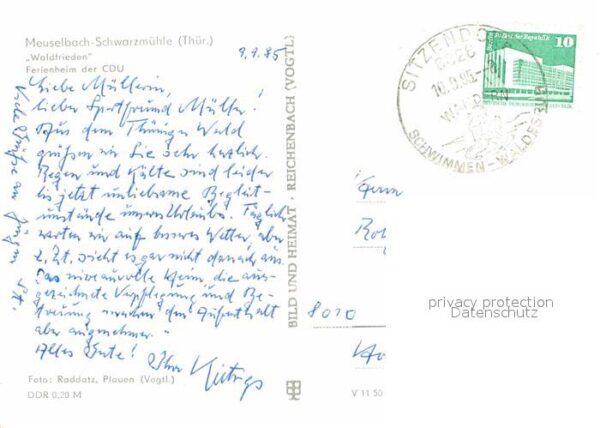 Meuselbach-Schwarzmühle (Thür.)
„Waldfrieden"
Ferienheim der CDU
9.9.85
Liebe Müllerin,
lieber Sportfreund Müller!
Aus dem Thüringer Wald
grüßen wir Sie sehr herzlich.
Regen und Kälte sind leider
bis jetzt unliebsame Begleit-
umstände unseres Urlaubs. Täglich
warten wir auf besseres Wetter, aber
z. Zt. sieht es gar nicht danach aus.
Das niveauvolle Heim, die aus-
gezeichnete Verpflegung und Be-
treuung machen den Aufenthalt
aber angenehmer. -
Alles Gute! Ihre
Viele Grüße an
Foto: Raddatz, Plauen (Vogtl.)
DDR 0,20 M
BILD UND HEIMAT · REICHENBACH (VOGTL)
V 11 50
SITZENDORF
6826
10.9.85
SCHWIMMEN - WALDESRUH
10
8010
privacy protection
Datenschutz